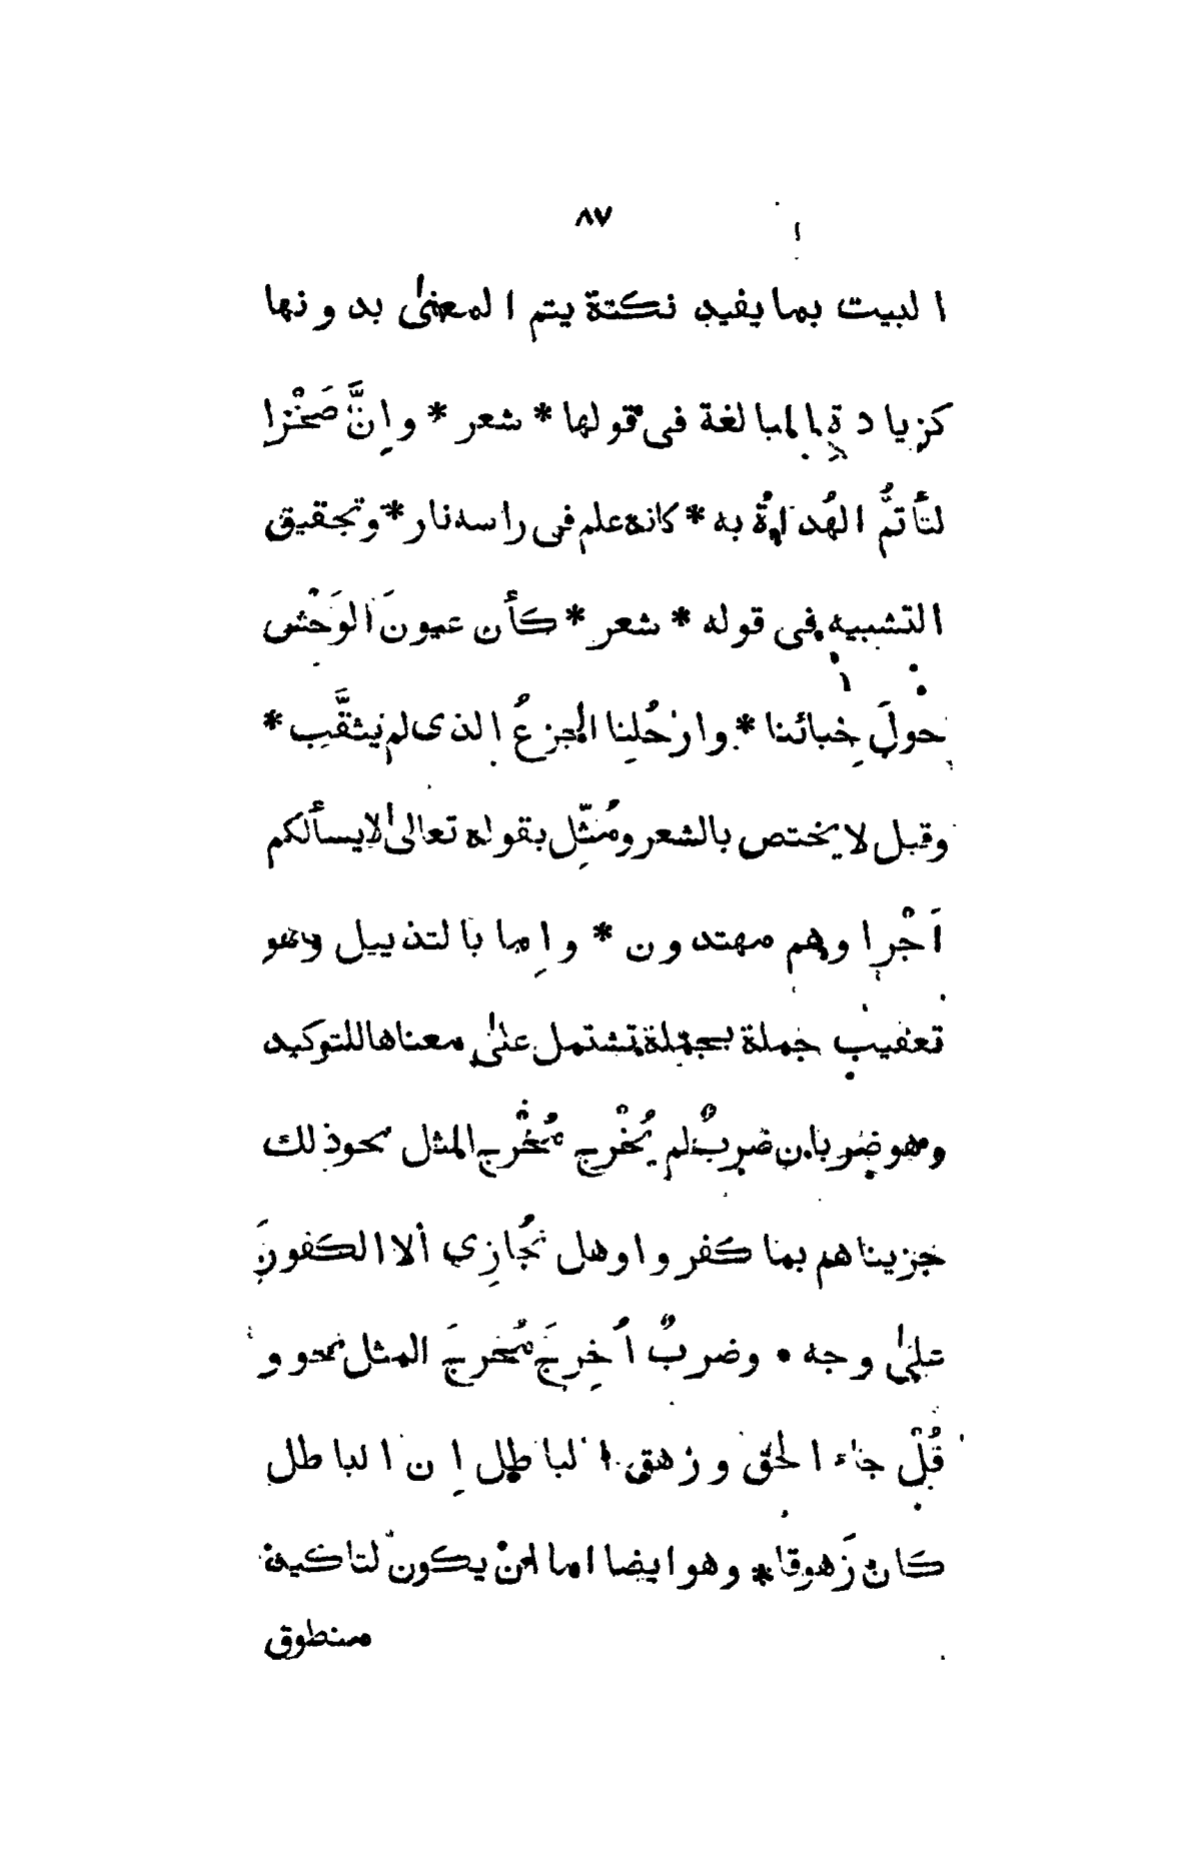 ٨٧
البيت بما يفيد نكتة يتم المعنىٰ بدونها
كزيادة المبالغة فى قولها * شعر * وإنَّ صَخْرا
لتأتمُّ الهُداةُ به * كانه علم فى راسه نار * وتحقيق
التشبيه فى قوله * شعر * كأن عيونَ الوَحْش
حوْلَ خِبائنا * وارْحُلِنا الجزعُ الذى لم يثقَّب *
وقيل لا يختص بالشعر ومُثِّل بقوله تعالىٰ لا يسألكم
اَجْرا وهم مهتدون * وإما بالتذييل وهو
تعقيب جملة بجملة تشتمل علىٰ معناها للتوكيد
وهو ضربان ضربٌ لم يُخْرج مُخْرج المثل نحو ذلك
جزيناهم بما كفروا وهل نُجازِي ألا الكفورَ
علىٰ وجه • وضربٌ اُخرِجَ مُخرجَ المثل نحو و
قُلْ جاء الحق وزهق الباطل إن الباطل
كان زَهوقا * وهو ايضا اما انْ يكون لتاكيد
منطوق